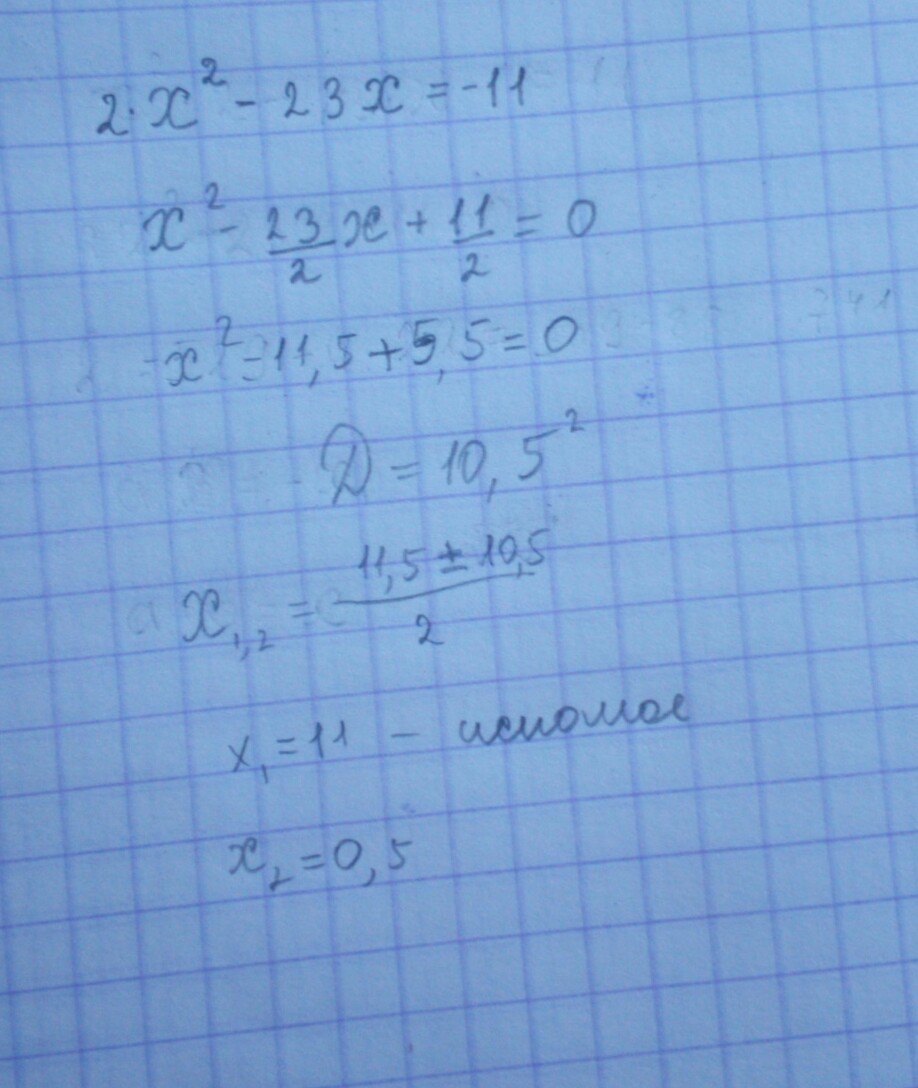 2·x² - 23x = -11
x² - 23/2 x + 11/2 = 0
x² - 11,5 + 5,5 = 0
D = 10,5²
x₁,₂ = (11,5 ± 10,5)/2
x₁ = 11 - искомое
x₂ = 0,5